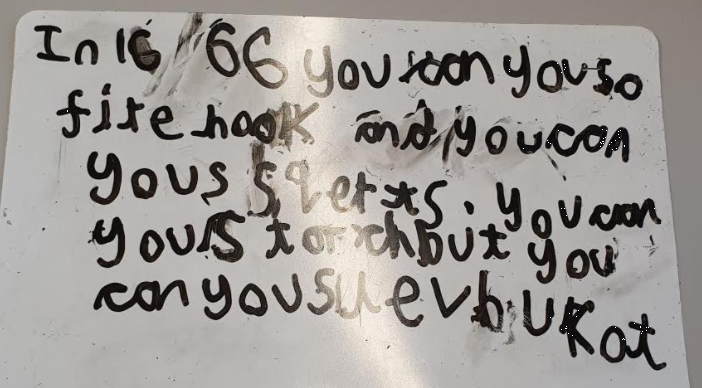 In 16 66 you can youso
fire hook and you can
yous sqerts. you can
yous torch but you
can yous levbukat